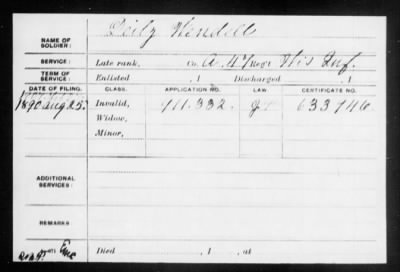 NAME OF SOLDIER: Deily Wendell
SERVICE: Late rank, Co. A. 47 Reg't Wis Inf.
TERM OF SERVICE: Enlisted , 1 Discharged , 1
DATE OF FILING. CLASS. APPLICATION NO. LAW. CERTIFICATE NO.
1890 Aug 25. Invalid, 911.332. 633746.
Widow,
Minor,
ADDITIONAL SERVICES:
REMARKS
Died , 1 , at